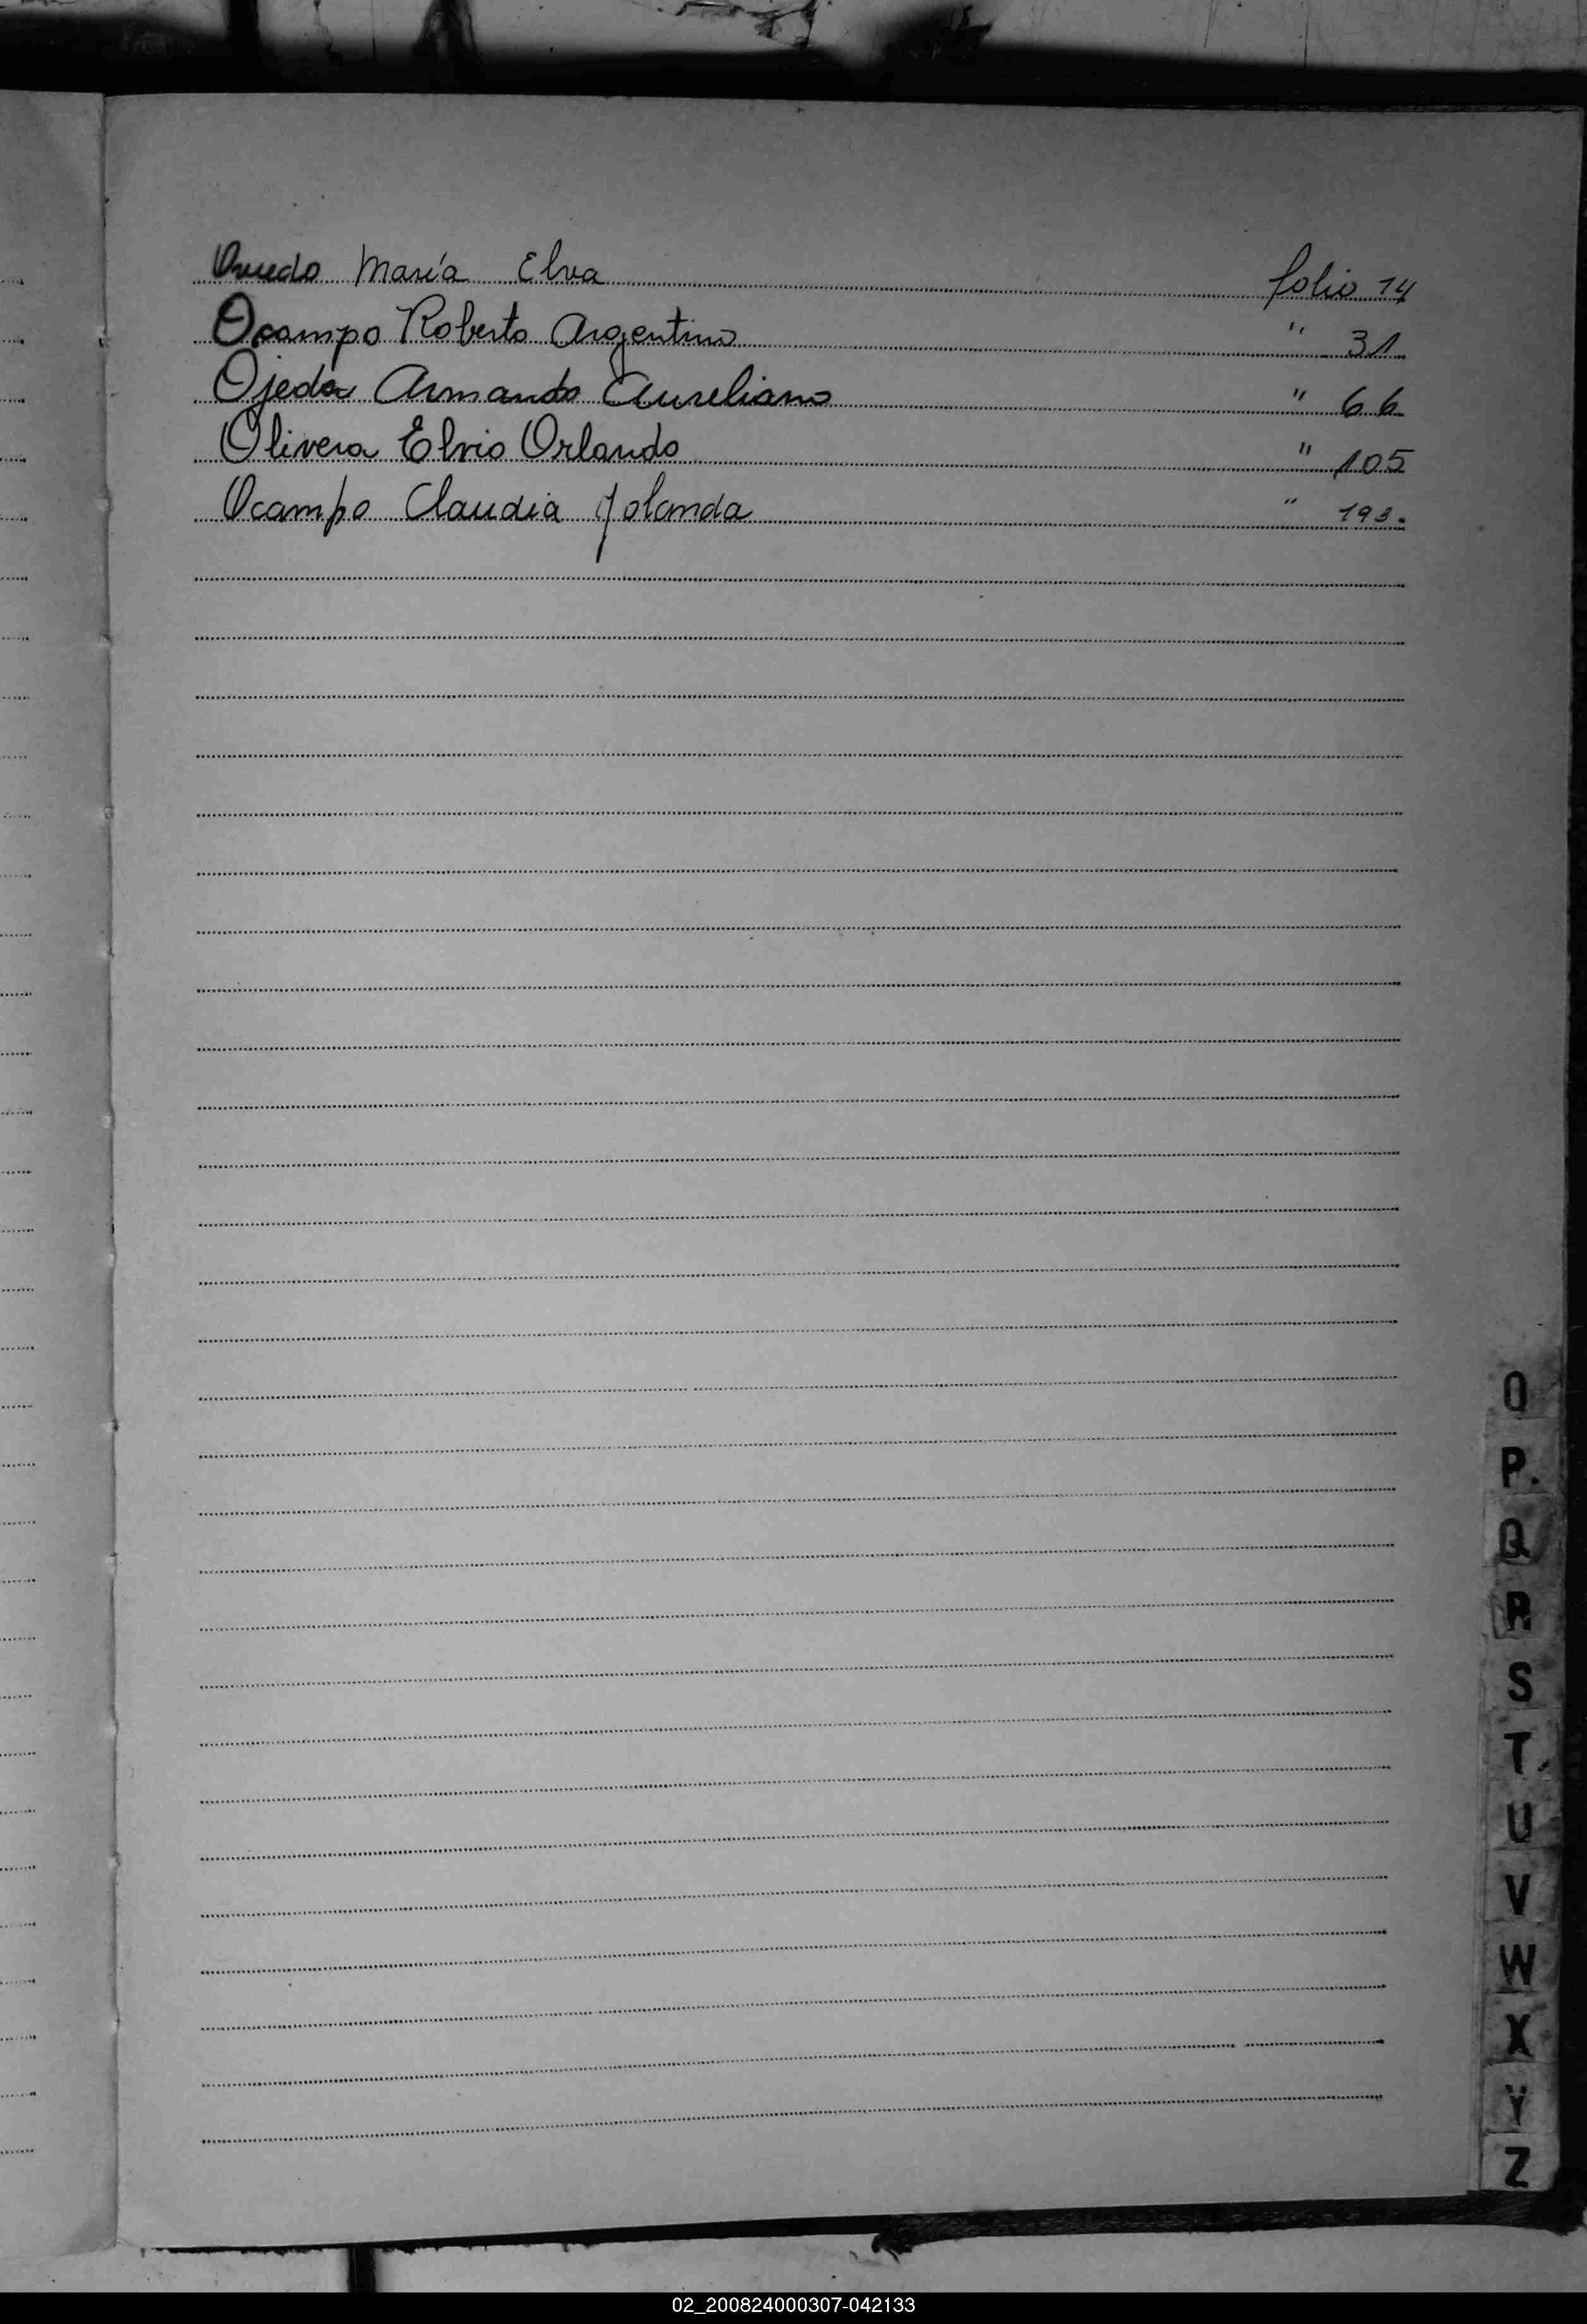 Oviedo María Elva folio 14
Ocampo Roberto Argentino " 31
Ojeda Armando Aureliano " 66
Olivera Elvio Orlando " 105
Ocampo Claudia Yolanda " 193.
O
P.
Q
R
S
T
U
V
W
X
Y
Z
02_200824000307-042133